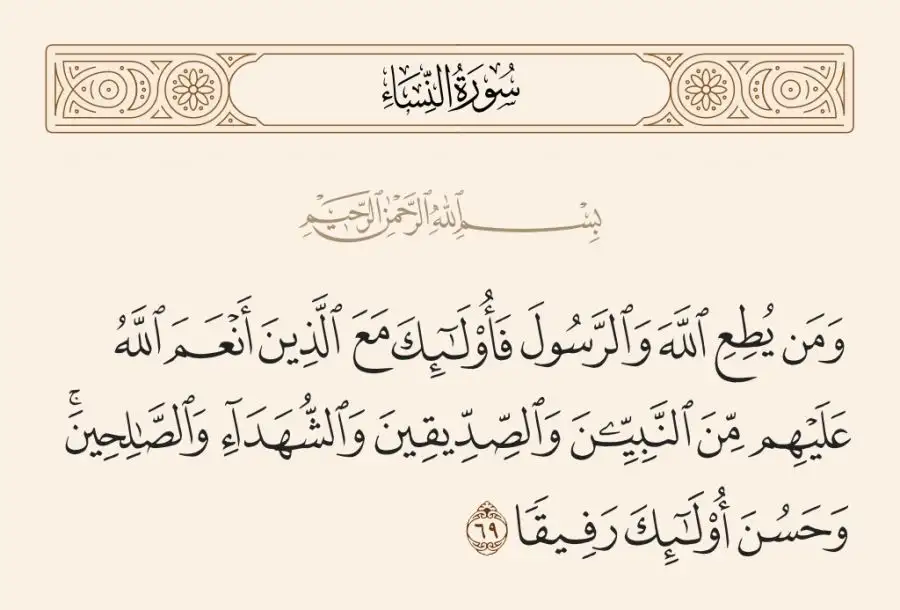 سُورَةُ النِّسَاءِ
بِسْمِ ٱللَّهِ ٱلرَّحْمَٰنِ ٱلرَّحِيمِ
وَمَن يُطِعِ ٱللَّهَ وَٱلرَّسُولَ فَأُو۟لَٰٓئِكَ مَعَ ٱلَّذِينَ أَنْعَمَ ٱللَّهُ
عَلَيْهِم مِّنَ ٱلنَّبِيِّـۧنَ وَٱلصِّدِّيقِينَ وَٱلشُّهَدَآءِ وَٱلصَّٰلِحِينَۚ
وَحَسُنَ أُو۟لَٰٓئِكَ رَفِيقًا ٦٩